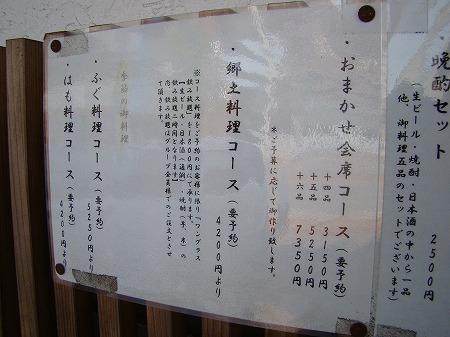 晩酌セット
2500円
(生ビール・焼酎・日本酒の中から一品
他、御料理五品のセットでございます)
・おまかせ会席コース(要予約)
十四品 3150円
十五品 5250円
十六品 7350円
※ご予算に応じて御作り致します。
・郷土料理コース(要予約)
4200円より
※コース料理をご予約のお客様に限り『ワングラス
飲み放題』を1800円にて承ります。
【生ビール・日本酒・焼酎(芋、米)の
飲み放題二時間となります】
尚、飲み放題はグループ全員様でのご注文とさせ
て頂きます。
季節の御料理
・ふぐ料理コース(要予約)
5250円より
・はも料理コース(要予約)
4200円より